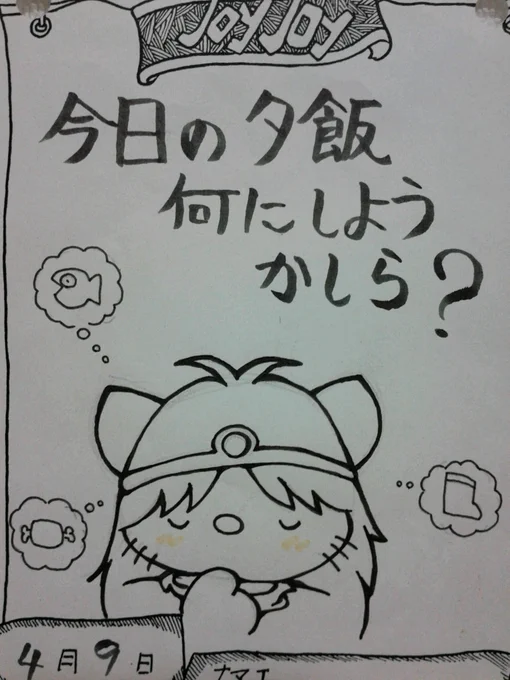 JOY JOY
今日の夕飯
何にしよう
かしら?
4月9日
ナマエ